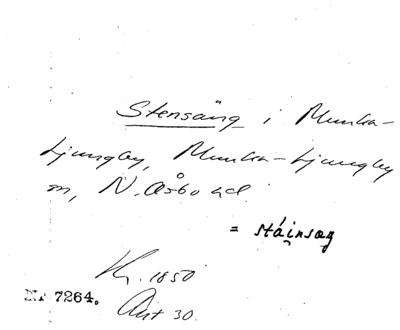 Stensäng i Munka-
Ljungby, Munka-Ljungby
sn, N. Åsbo hd.
= stáịnsæŋ
Kr. 1850
Nr 7264. Ant 30.